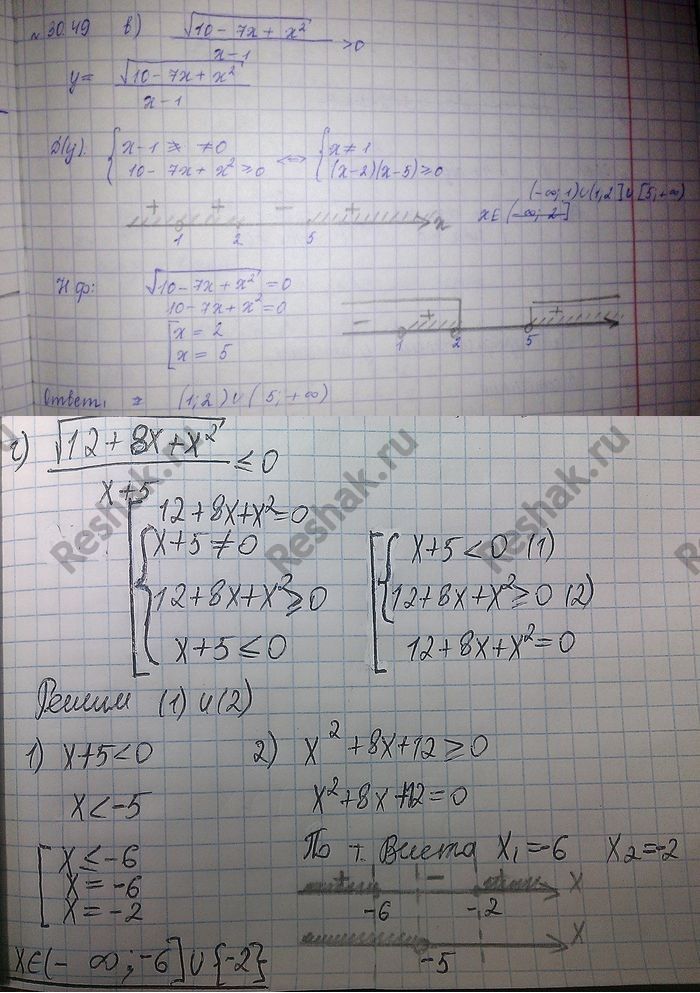 № 30.49 в) √(10 - 7x + x²) / (x - 1) > 0
y = √(10 - 7x + x²) / (x - 1)
D(y): { x - 1 ≠ 0 ⇔ { x ≠ 1
10 - 7x + x² ≥ 0 (x - 2)(x - 5) ≥ 0
(-∞; 1) ∪ (1; 2] ∪ [5; +∞)
+ + - + x x ∈ (-∞; 2]
1 2 5
Н.ф: √(10 - 7x + x²) = 0
10 - 7x + x² = 0
[ x = 2 - + +
x = 5 1 2 5
Ответ: (1; 2) ∪ (5; +∞)
г) √(12 + 8x + x²) / (x + 5) ≤ 0
[ 12 + 8x + x² = 0
{ x + 5 ≠ 0 [ { x + 5 < 0 (1)
12 + 8x + x² ≥ 0 12 + 8x + x² ≥ 0 (2)
x + 5 ≤ 0 12 + 8x + x² = 0
Решим (1) и (2)
1) x + 5 < 0 2) x² + 8x + 12 ≥ 0
x < -5 x² + 8x + 12 = 0
[ x ≤ -6 По т. Виета x₁ = -6 x₂ = -2
x = -6 + - + x
x = -2 -6 -2
x
x ∈ (-∞; -6] ∪ {-2} -5
Reshak.ru
Reshak.ru